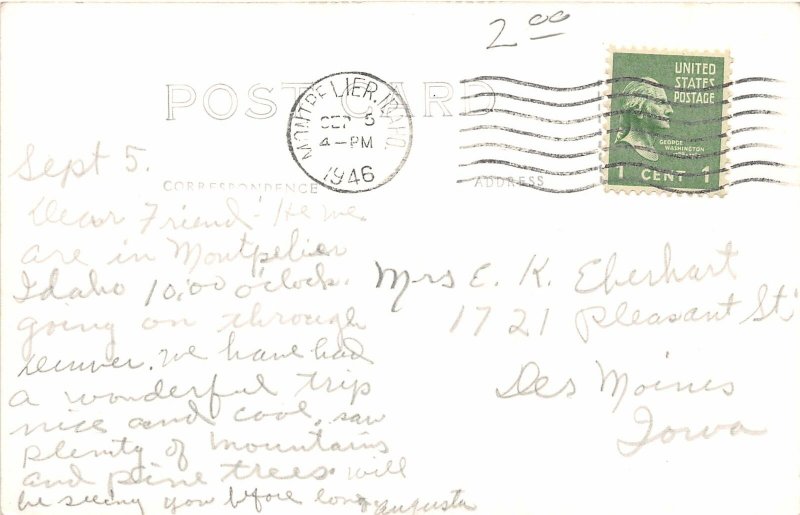 2.00
POST CARD
MONTPELIER, IDAHO.
SEP 5
4-PM
1946
UNITED
STATES
POSTAGE
GEORGE
WASHINGTON
1 CENT 1
CORRESPONDENCE
ADDRESS
Sept 5.
Dear Friend. Here we
are in Montpelier
Idaho 10:00 o'clock.
going on through
Denver. We have had
a wonderful trip
nice and cool. saw
plenity of mountains
and pine trees. will
be seeing you before long
Augusta
Mrs E. K. Eberhart
1721 Pleasant St.
Des Moines
Iowa